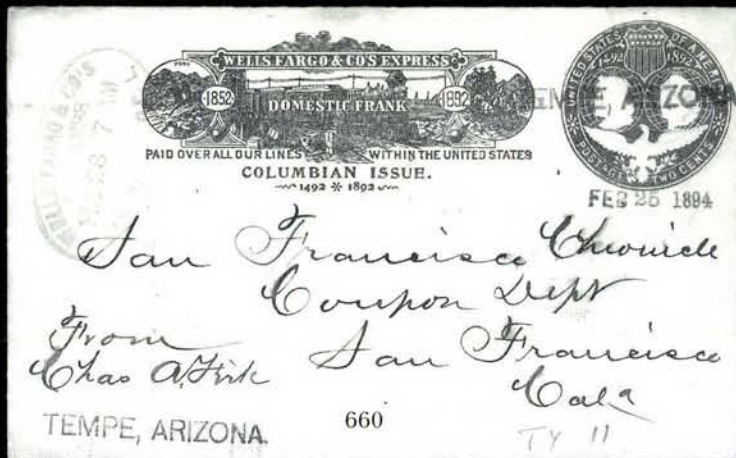 WELLS FARGO & CO'S EXPRESS
1852 DOMESTIC FRANK 1892
PAID OVER ALL OUR LINES WITHIN THE UNITED STATES
COLUMBIAN ISSUE.
1492 * 1892
UNITED STATES OF AMERICA
1492 1892
POSTAGE TWO CENTS
WELLS FARGO & CO'S
28 7 AM
TEMPE, ARIZONA
FEB 25 1894
San Francisco Chronicle
Coupon Dept
San Francisco
Cala
From
Chas A. Fisk
TEMPE, ARIZONA.
660
TY 11